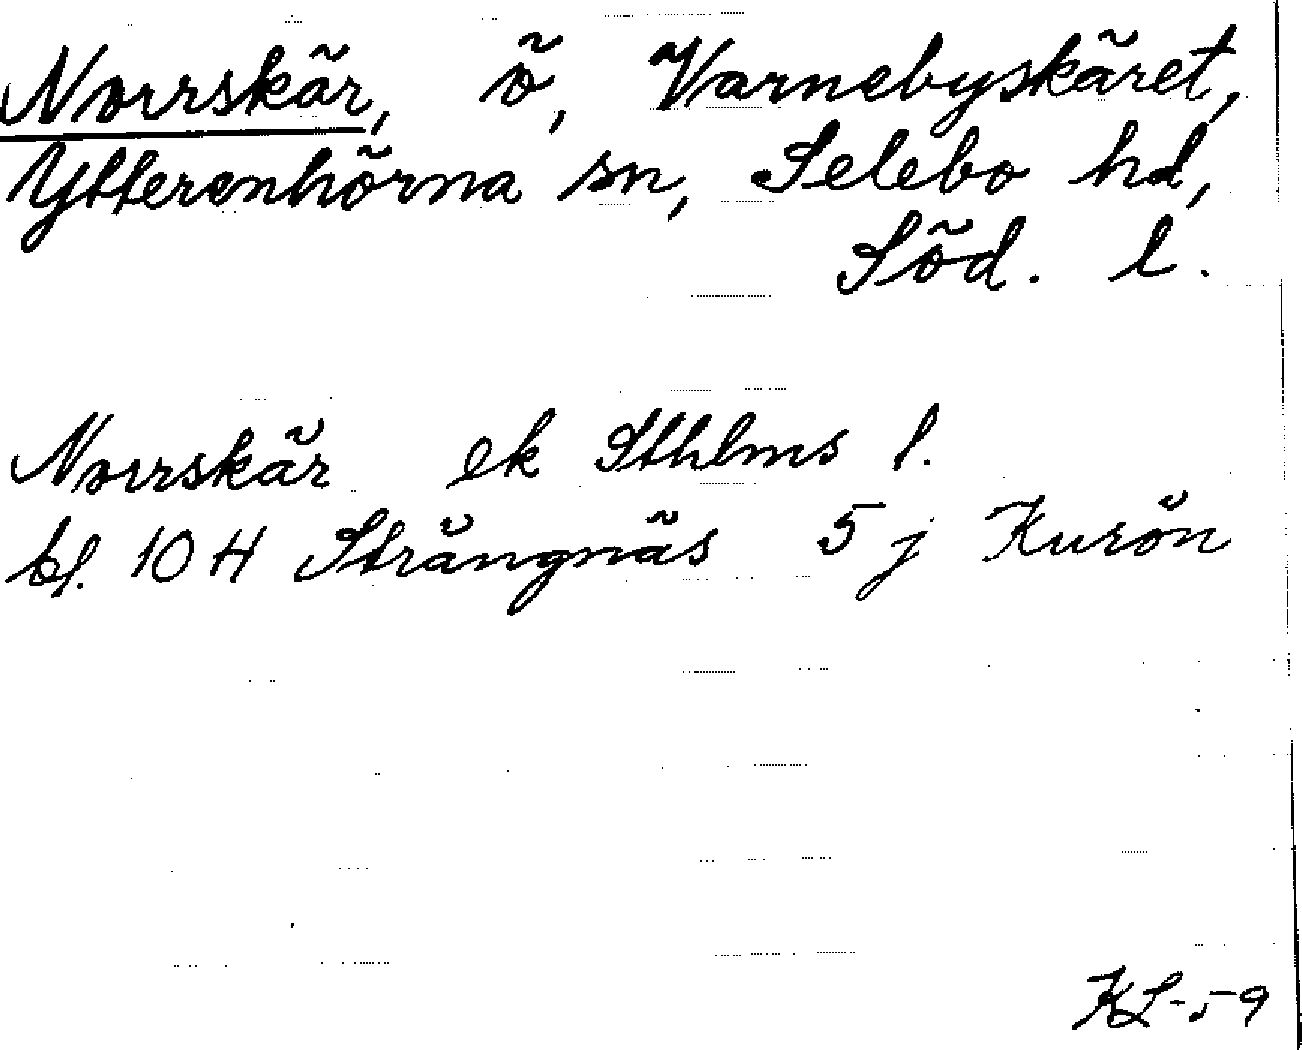 Norrskär, ö, Varnebyskäret,
Ytterenhörna sn, Selebo hd,
Söd. l.
Norrskär ek Sthlms l.
bl. 10 H Strängnäs 5 j Kurön
KL-59